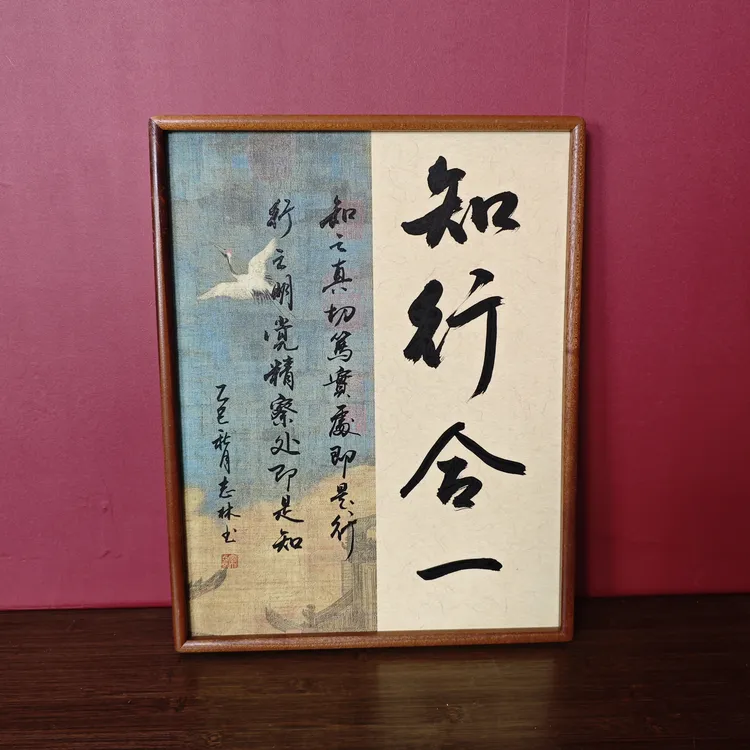 知行合一
知之真切篤實處即是行
行之明覺精察处即是知
乙巳秋月志林书